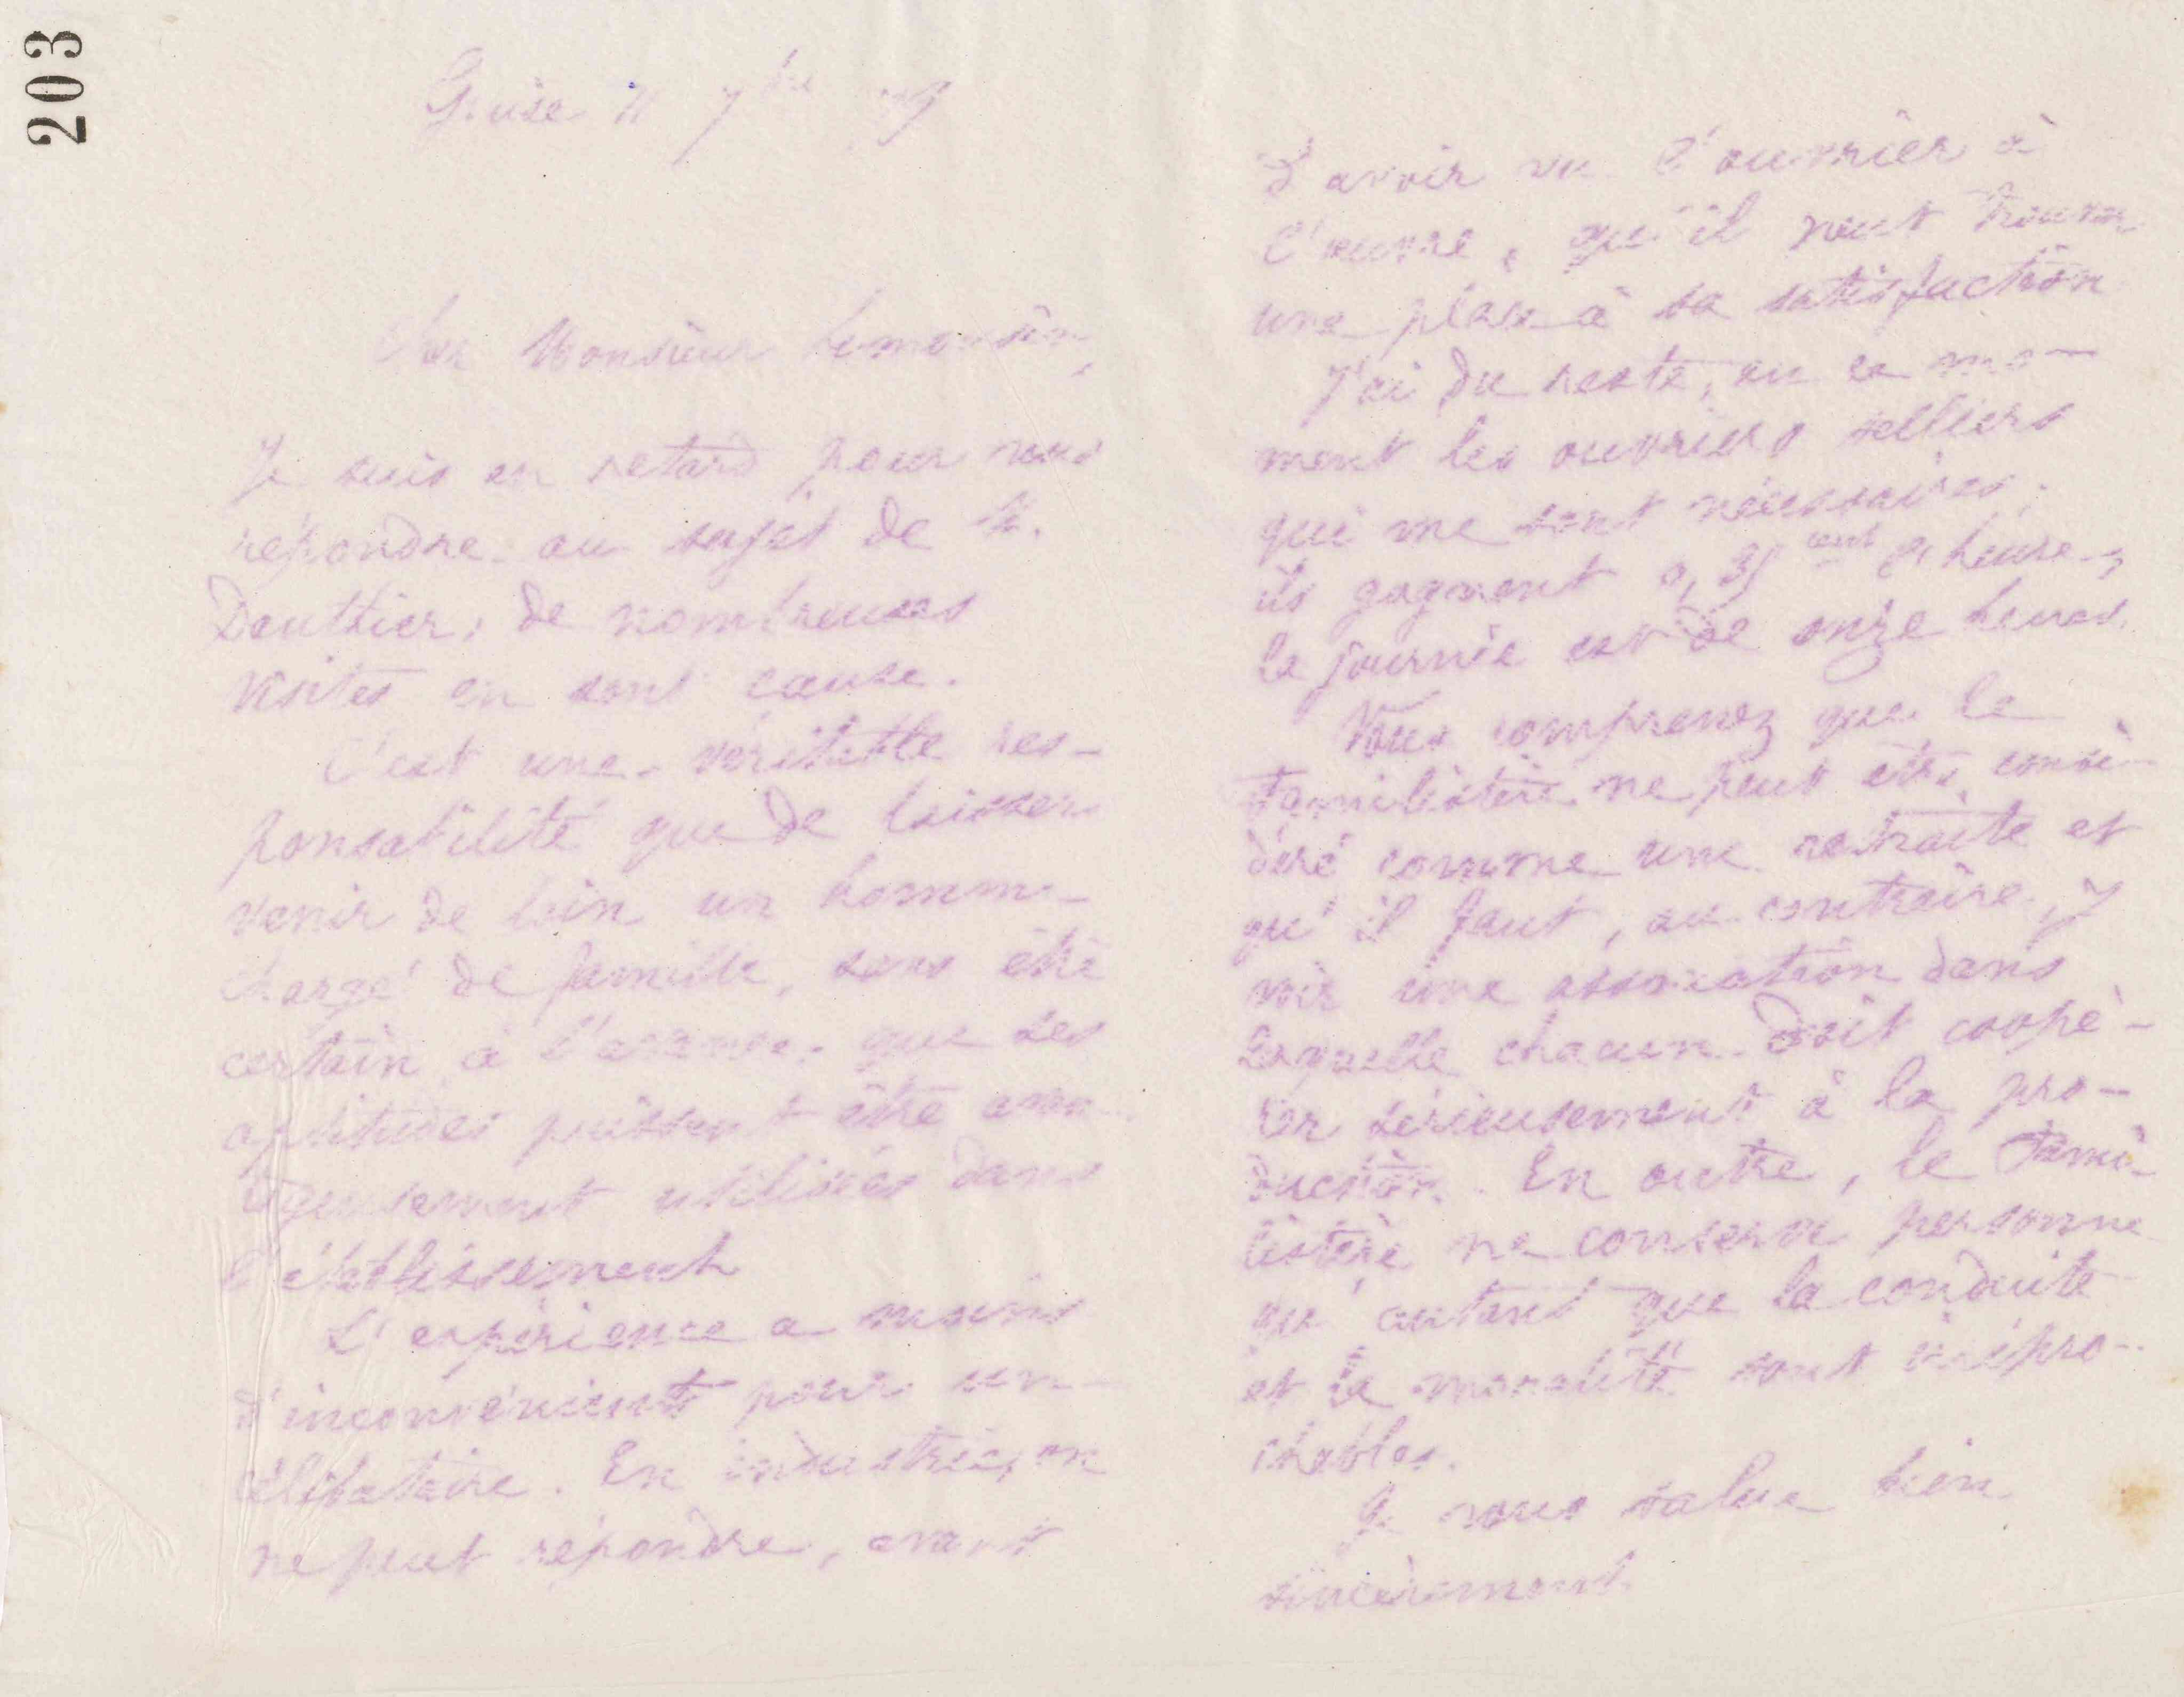 203
Guise 11 7bre 79
Cher Monsieur Limousin,
Je suis en retard pour vous
répondre au sujet de M.
Dauthier; de nombreuses
visites en sont cause.
C'est une véritable res-
ponsabilité que de laisser
venir de loin un homme
chargé de famille, sans être
certain à l'avance que ses
aptitudes puissent être avan-
tageusement utilisées dans
l'établissement
L'expérience a moins
d'inconvénients pour un
célibataire. En industrie, on
ne peut répondre, avant
d'avoir vu l'ouvrier à
l'œuvre, qu'il peut trouver
une place à sa satisfaction
J'ai du reste, en ce mo-
ment les ouvriers selliers
qui me sont nécessaires;
ils gagnent 0,35 cent gr heure,
la journée est de onze heures.
Vous comprenez que le
Familistère ne peut être consi-
déré comme une retraite et
qu'il faut, au contraire, y
voir une association dans
laquelle chacun doit coopé-
rer sérieusement à la pro-
duction. En outre, le Fami-
listère ne conserve personne
qu'autant que la conduite
et la moralité sont irrépro-
chables.
Je vous salue bien
sincèrement